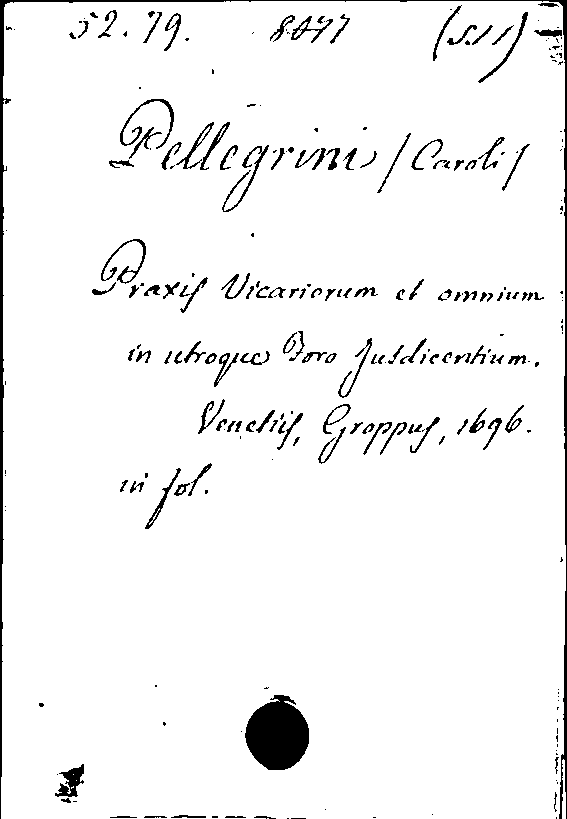 52.79. 8077 (S.11)
Pellegrini / Caroli /
Praxis Vicariorum et omnium
in utroque Foro Jusdicentium.
Venetiis, Groppus, 1696.
in fol.